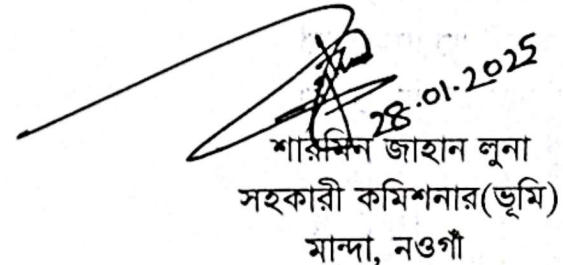 28.01.2025
শারমিন জাহান লুনা
সহকারী কমিশনার(ভূমি)
মান্দা, নওগাঁ